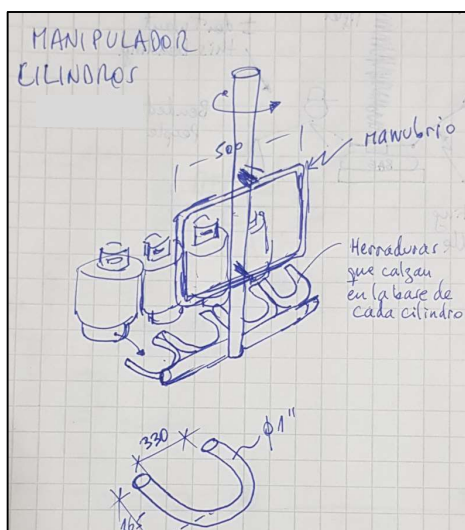 MANIPULADOR
CILINDROS
500
Manubrio
Herraduras
que calzan
en la base de
cada cilindro
330
φ1"
165